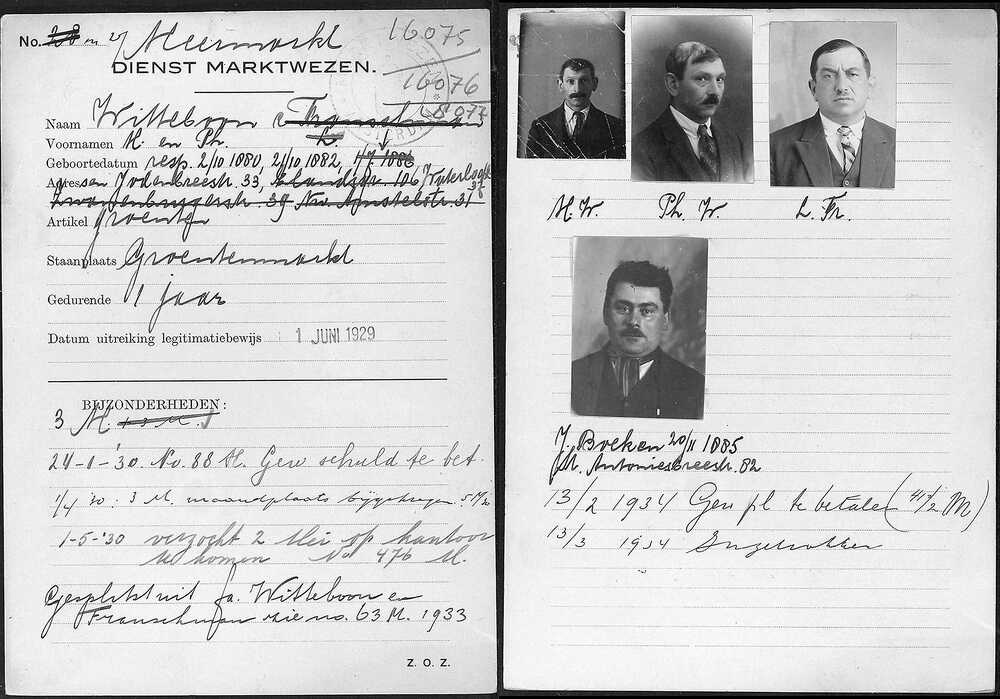 No. 28 en 27 Meermarkt
16075
DIENST MARKTWEZEN.
16076
16077
Naam Witteboon & Franschman
Voornamen H. en Ph. L.
Geboortedatum resp. 2/10 1880, 21/10 1882, 1/7 1886
Adres resp. Jodenbreestr. 33,
Zwanenburgerstr. 39 Nw. Amstelstr. 31 37
Artikel groenten
Staanplaats Groentenmarkt
Gedurende 1 jaar
Datum uitreiking legitimatiebewijs 1 JUNI 1929
BIJZONDERHEDEN:
3 M.
24-1-'30. No. 88 M. Gew schuld te bet.
1/4 30: 3 M. maandplaats bijgekregen. 5 M/2
1-5-'30 verzocht 2 Mei op kantoor
te komen No 476 M.
Gesplitst uit fa. Witteboon en
Franschman zie no. 63 M. 1933
Z. O. Z.
H. W. Ph. W. L. Fr.
J. Boeken 20/11 1885
St. Antoniesbreestr. 82
13/2 1934 Gew pl te betalen (4 1/2 M)
13/3 1934 Ingetrokken